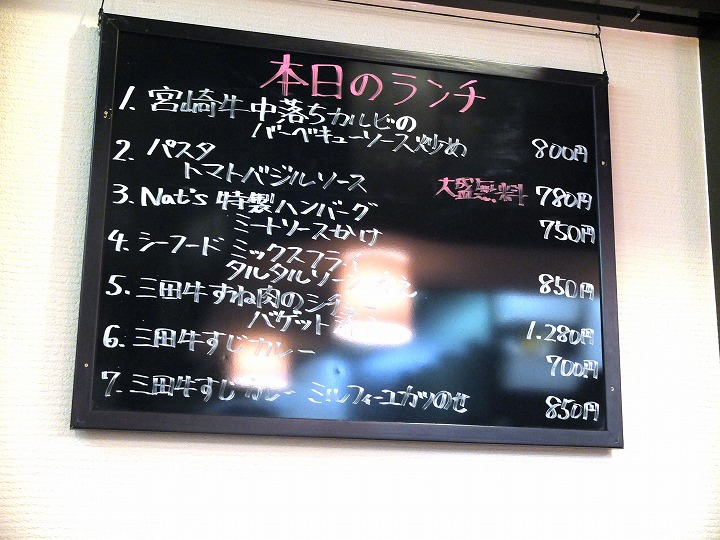 本日のランチ
1. 宮崎牛中落ちカルビの
バーベキューソース炒め 800円
2. パスタ
トマトバジルソース 大盛無料 780円
3. Nat's 特製ハンバーグ
ミートソースかけ 750円
4. シーフードミックスフライ
タルタルソース 850円
5. 三田牛すね肉のシチュー
バゲット 1.280円
6. 三田牛すじカレー
700円
7. 三田牛すじカレー ミルフィーユカツのせ 850円